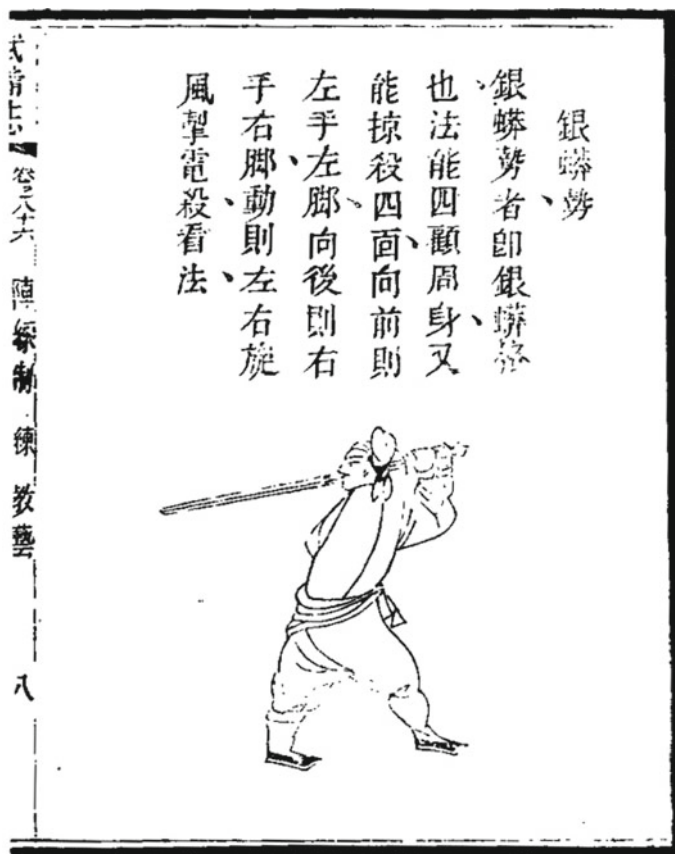 銀蟒勢
銀蟒勢者卽銀蟒格
也法能四顧周身又
能掠殺四面向前則
左手左脚向後則右
手右脚動則左右旋
風掣電殺看法
武備志 卷之八十六 陣練制 練 教藝 八